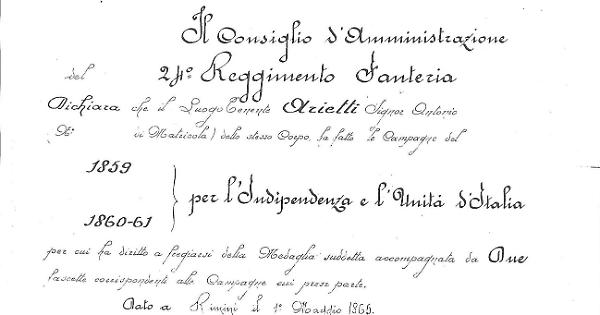 Il Consiglio d'Amministrazione
del 24º Reggimento Fanteria
Dichiara che il LuogoTenente Arietti Signor Antonio
(Nº di Matricola) dello stesso Corpo, ha fatto le Campagne del
1859
1860-61
per l'Indipendenza e l'Unità d'Italia
per cui ha diritto a fregiarsi della Medaglia suddetta accompagnata da Due
fascette corrispondenti alle Campagne cui prese parte.
Dato a Rimini il 1º Maggio 1865.